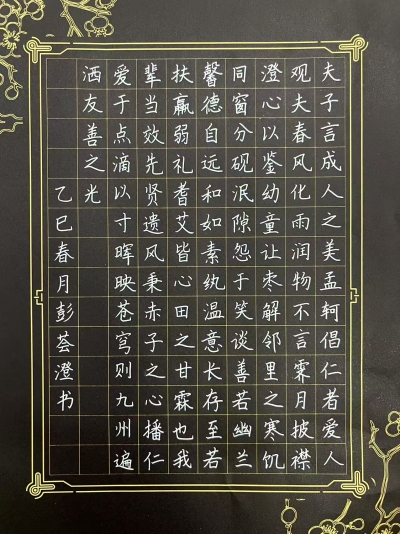 夫子言成人之美孟轲倡仁者爱人
观夫春风化雨润物不言霁月披襟
澄心以鉴幼童让枣解邻里之寒饥
同窗分砚泯隙怨于笑谈善若幽兰
馨德自远和如素纨温意长存至若
扶赢弱礼耆艾皆心田之甘霖也我
辈当效先贤遗风秉赤子之心播仁
爱于点滴以寸晖映苍穹则九州遍
洒友善之光
乙巳春月彭荟澄书